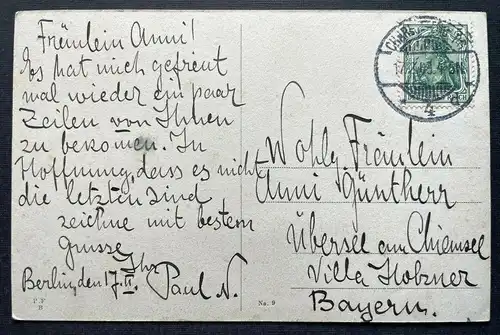 Fräulein Anni!
Es hat mich gefreut
mal wieder ein paar
Zeilen von Ihnen
zu bekommen. In
Hoffnung, dass es nicht
die letzten sind,
zeichne mit bestem
Grusse
Ihr
Paul N.
Berlin, den 17.II.
Wohlg. Fräulein
Anni Güntherr
Übersee am Chiemsee
Villa Hobzner
Bayern.
P. P.
B
No. 9